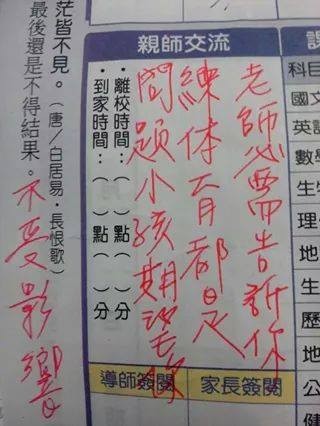 課
科目
國文
英語
數學
生物
理
地
生
歷
地
公
親師交流
老師必需告訴你
練体育都是
問題小孩期望
・離校時間:( )點( )分
・到家時間:( )點( )分
導師簽閱
家長簽閱
茫皆不見。(唐/白居易・長恨歌)
最後還是不得結果。
不受影響